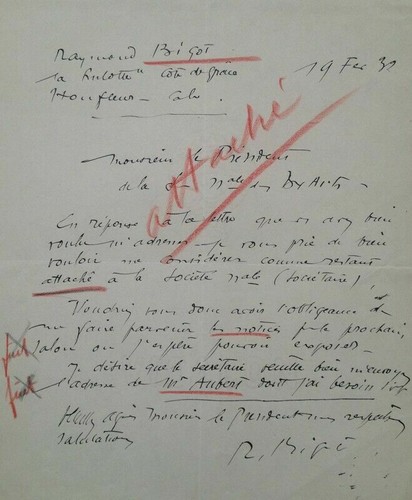 Raymond Bigot
"la Hulotte" côte de grâce
Honfleur - Calv.
19 Fev 31
attaché
Monsieur le Président
de la Sté Nale des Bx Arts -
En réponse à la lettre que vous avez bien
voulu m'adresser je vous prie de bien
vouloir me considérer comme restant
attaché à la Société Nale (Sociétaire)
Voudriez vous donc avoir l'obligeance de
me faire parvenir les notices pr le prochain
salon où j'espère pouvoir exposer -
fait
Je désire que le Secrétaire veuille bien m'envoyer
fait
l'adresse de Mr Aubert dont j'ai besoin
Veuillez agréer Monsieur le Président mes respectueuses
salutations
R. Bigot